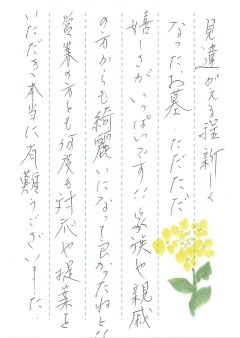 見違がえる程新しく
なったお墓・ただただ
嬉しさがいっぱいです!!家族や親戚
の方からも綺麗いになって良かったねと!!
営業の方とも何度も対応や提案を
いただき、本当に有難うございました